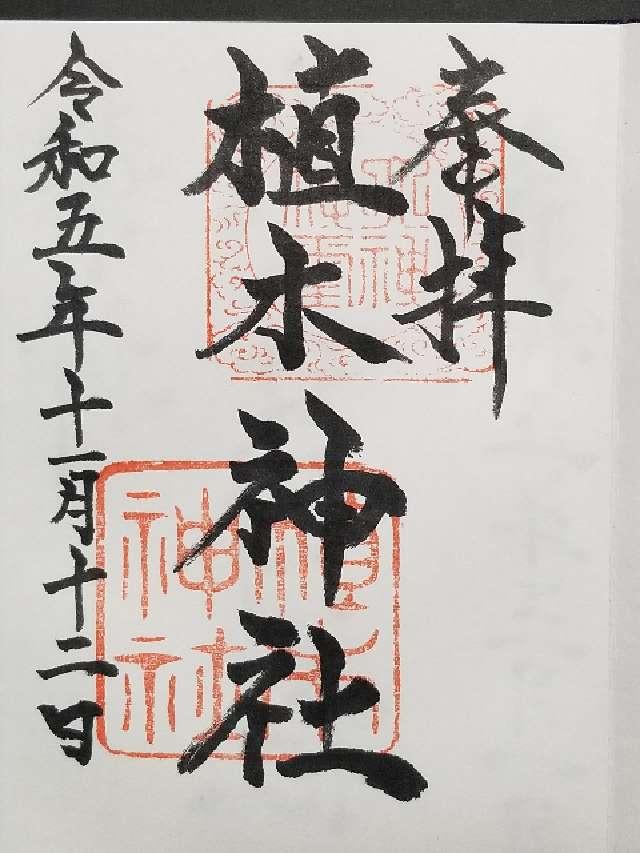 奉拝
植木神社
令和五年十一月十二日
植木神社